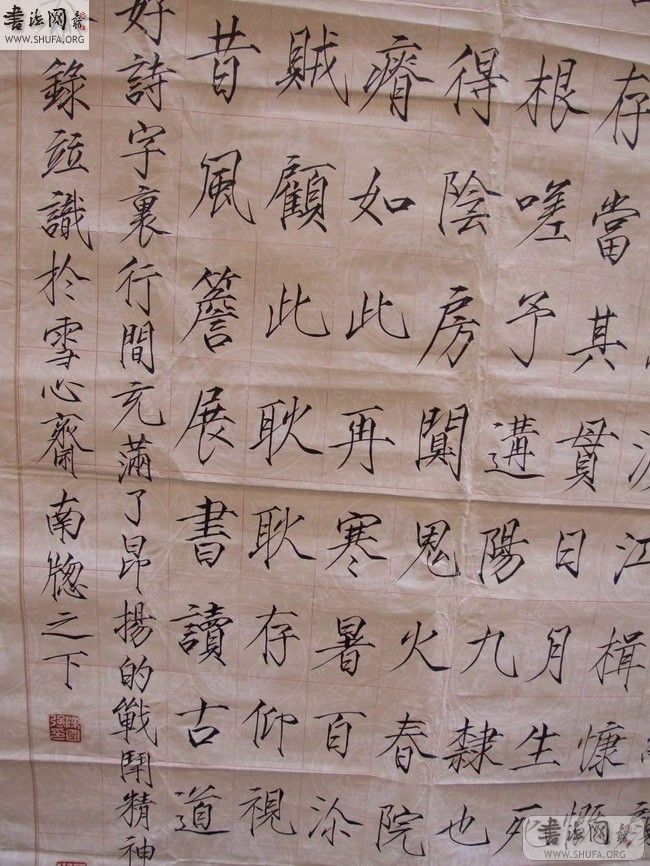 書法网
WWW.SHUFA.ORG
江楫慷慨
存當其貫日月生死
根嗟予遘陽九隸也
得陰房闃鬼火春院
瘠如此再寒暑百沴
賊顧此耿耿存仰視
昔風簷展書讀古道
好詩字裏行間充滿了昂揚的戰鬥精神
錄並識於雪心齋南牕之下
書法网
WWW.SHUFA.ORG